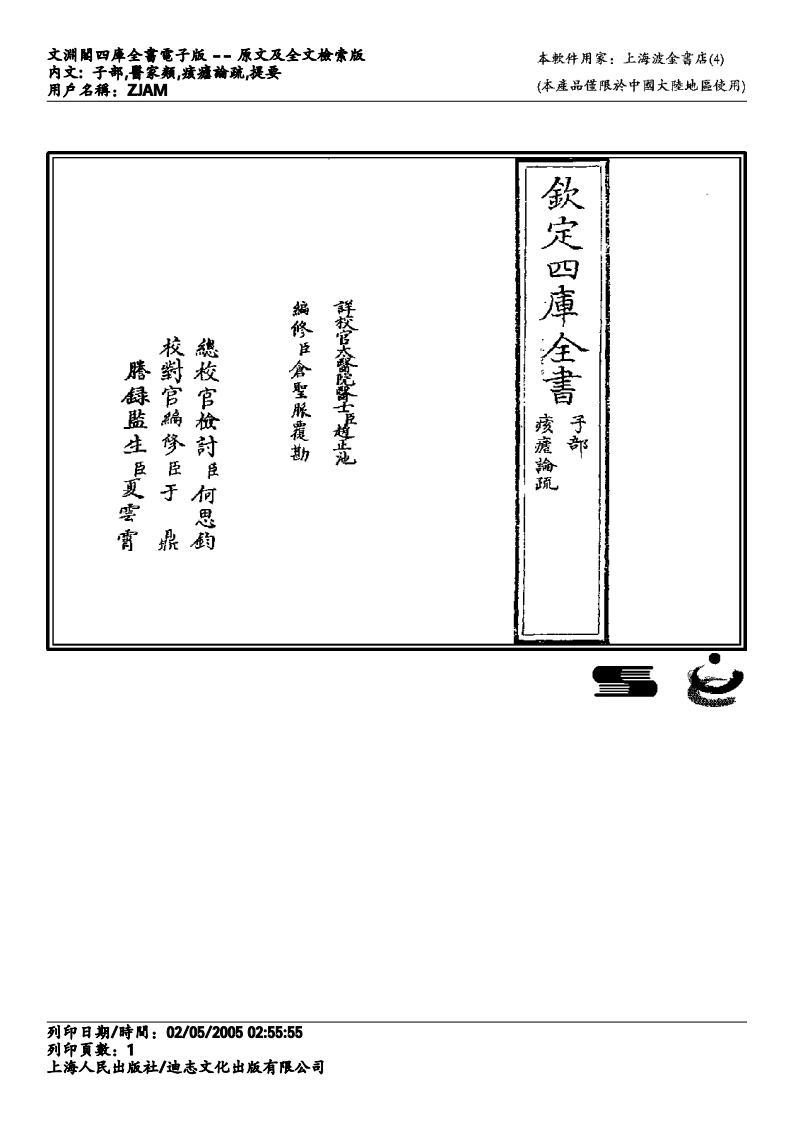 文淵閣四庫全書電子版 -- 原文及全文檢索版
內文：子部,醫家類,痎瘧論疏,提要
用戶名稱：ZJAM
本軟件用家：上海波金書店(4)
(本產品僅限於中國大陸地區使用)
欽定四庫全書
子部
痎瘧論疏
詳校官太醫院醫士臣趙正池
編修臣倉聖脈覆勘
總校官檢討臣何思鈞
校對官編修臣于鼎
謄錄監生臣夏雲霄
列印日期/時間：02/05/2005 02:55:55
列印頁數：1
上海人民出版社/迪志文化出版有限公司